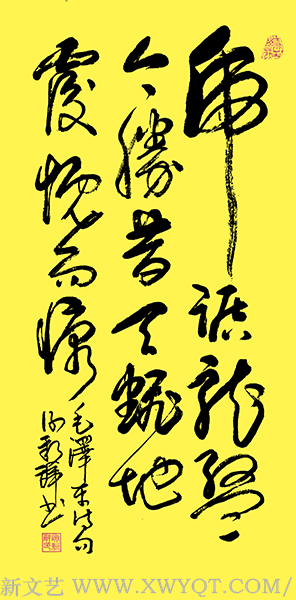 虎踞龍盤
今勝昔天翻地
覆慨而慷
毛澤东诗句
书
新文艺 WWW.XWYQT.COM/